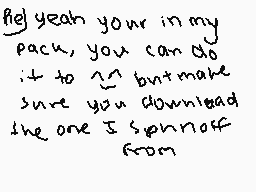 Re) yeah your in my
pack, you can do
it to ^^ but make
sure you download
the one I spinnoff
from